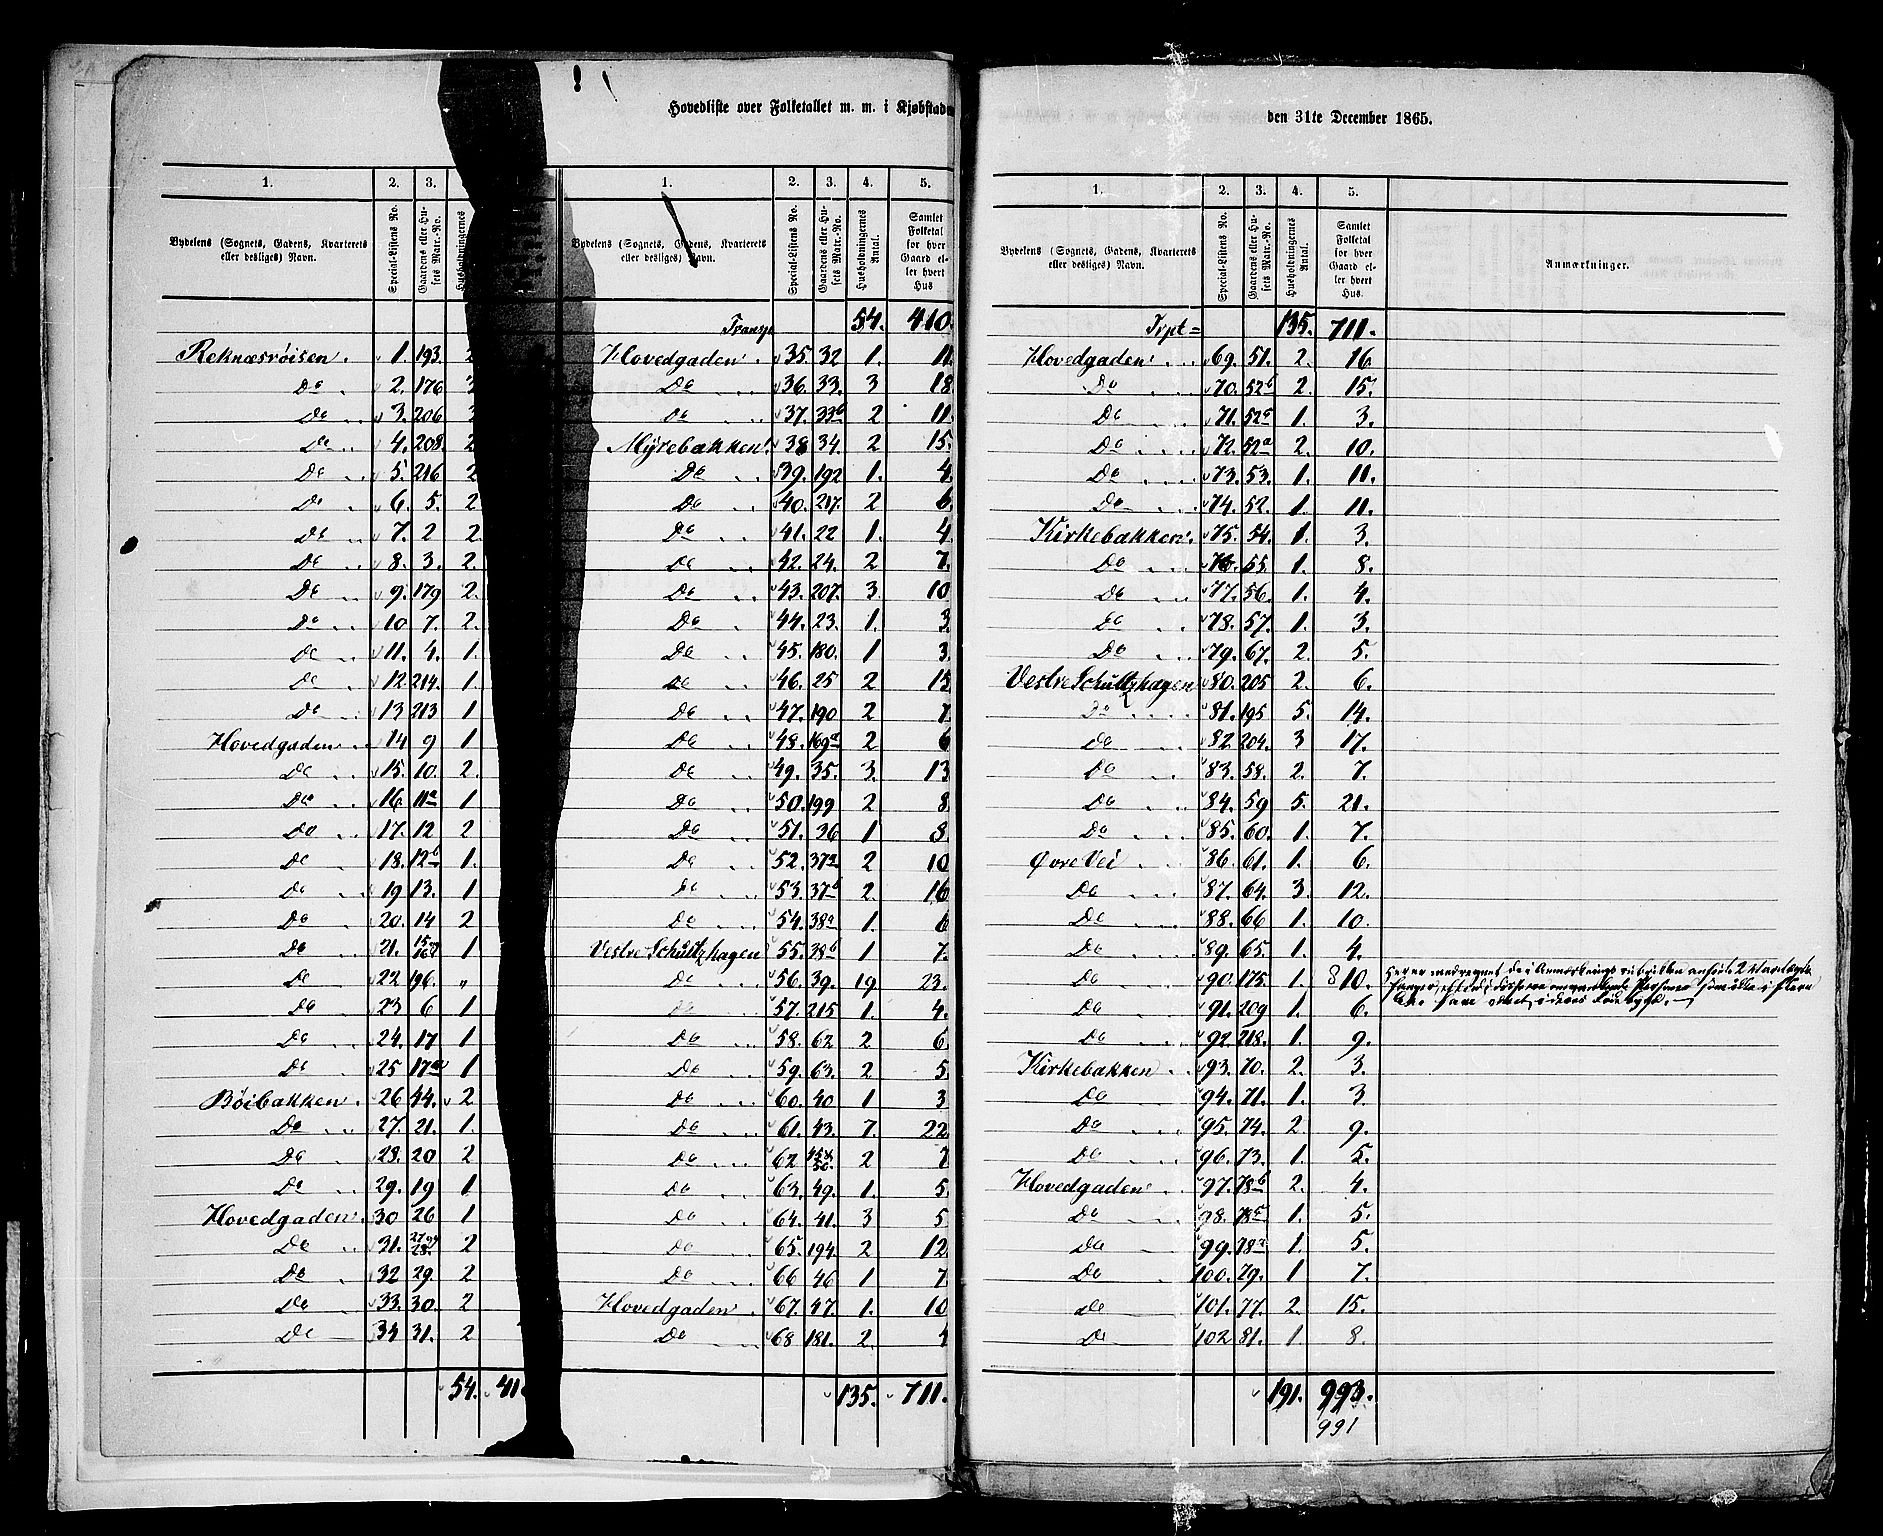 Hovedliste over Folketallet m. m. i Kjøbstaden
1. 2. 3. 1. 2. 3. 4. 5.
Bydelens (Sognets, Gadens, Kvarterets eller desliges) Navn. Special-Listens No. Gaardens eller Husets Matr.-No. Husholdningernes
Bydelens (Sognets, Gadens, Kvarterets eller desliges) Navn. Special-Listens No. Gaardens eller Husets Matr.-No. Husholdningernes Antal. Samlet Folketal for hver Gaard eller hvert Hus
Reknæsrøisen. 1. 193. 2
Do 2. 176 3
Do 3. 206
Do 4. 208. 2
Do 5. 216 2
Do 6. 5. 2
Do 7. 2 2.
Do 8. 3. 2.
Do 9. 179 2.
Do 10 7. 2.
Do 11. 4. 1.
Do 12 214. 1.
Do 13 213 1
Hovedgaden 14 9 1
Do 15. 10. 2.
Do 16. 11a 1
Do 17. 12 2
Do 18. 12b 1.
Do 19 13. 1
Do 20. 14 2
Do 21. 15 og 16 1
Do 22 196. "
Do 23 6 1
Do 24. 17 1
Do 25 17a 1
Bøibakken. 26 44. 2
Do 27 21. 1.
Do 28. 20 2
Do 29. 19 1
Hovedgaden. 30 26 1
Do 31. 27 og 28. 2
Do 32 29. 2
Do 33. 30. 2
Do 34 31. 2
54. 41
Transp 54. 410.
Hovedgaden. 35. 32 1. 11
Do 36. 33. 3 18
Do 37. 33b 2 11.
Myrebakken. 38 34 2 15.
Do 39. 192 1. 4.
Do 40. 217. 2 6.
Do 41. 22 1. 4.
Do 42. 24. 2 7.
Do 43. 207. 3 10
Do 44. 23. 1. 3.
Do 45. 180. 1 3.
Do 46. 25 2 15
Do 47. 190 2 7.
Do 48. 169a 2 6
Do 49. 35. 3. 13
Do 50. 199 2 8
Do 51. 36 1 8.
Do 52. 37a 2 10
Do 53. 37b 2. 16
Do 54. 38a 1. 6
Vestre Schultzhagen 55. 38b 1 7.
Do 56. 39. 19 23.
Do 57. 215 1. 4.
Do 58. 62 2 6
Do 59. 63. 2 5.
Do 60. 40 1 3
Do 61. 43. 7. 22
Do 62 2 7
Do 63. 49. 1. 5.
Do 64. 41. 3 5
Do 65. 194. 2 12
Do 66 46 1 7
Hovedgaden. 67. 47. 1. 10
Do 68 181. 2.
135. 711.
den 31te December 1865.
1. 2. 3. 4. 5.
Bydelens (Sognets, Gadens, Kvarterets eller desliges) Navn. Special-Listens No. Gaardens eller Husets Matr.-No. Husholdningernes Antal. Samlet Folketal for hver Gaard eller hvert Hus. Anmærkninger.
Trpt= 135. 711.
Hovedgaden. 69. 51. 2. 16
Do 70. 52b 2. 15.
Do 71. 52c 1. 3.
Do 72. 52a 2. 10.
Do 73. 53. 1. 11.
Do 74. 52. 1. 11.
Kirkebakken. 75. 54. 1. 3.
Do 76. 55. 1. 8.
Do 77. 56. 1. 4.
Do 78. 57. 1. 3.
Do 79. 67. 2. 5.
Vestre Schultzhagen 80. 205 2. 6.
Do 81. 195 5. 14.
Do 82. 204. 3 17.
Do 83. 58. 2. 7.
Do 84. 59 5. 21.
Do 85. 60. 1. 7.
Øvre Vei 86. 61. 1. 6.
Do 87. 64. 3. 12.
Do 88. 66 1. 10.
Do 89. 65. 1. 4.
Do 90. 175. 1. 8 10. Her er medregnet de i Anmærknings rubrikken anførte 2
Do 91. 209 1. 6.
Do 92. 218. 1. 9.
Kirkebakken 93. 70. 2. 3.
Do 94. 71. 1. 3.
Do 95. 74. 2. 9.
Do 96. 73. 1. 5.
Hovedgaden. 97. 78b 2. 4.
Do 98. 78c 1. 5.
Do 99. 78a 1. 5.
Do 100. 79. 1 7.
Do 101. 77. 2. 15.
Do 102 81. 1 8.
191. 993.
991